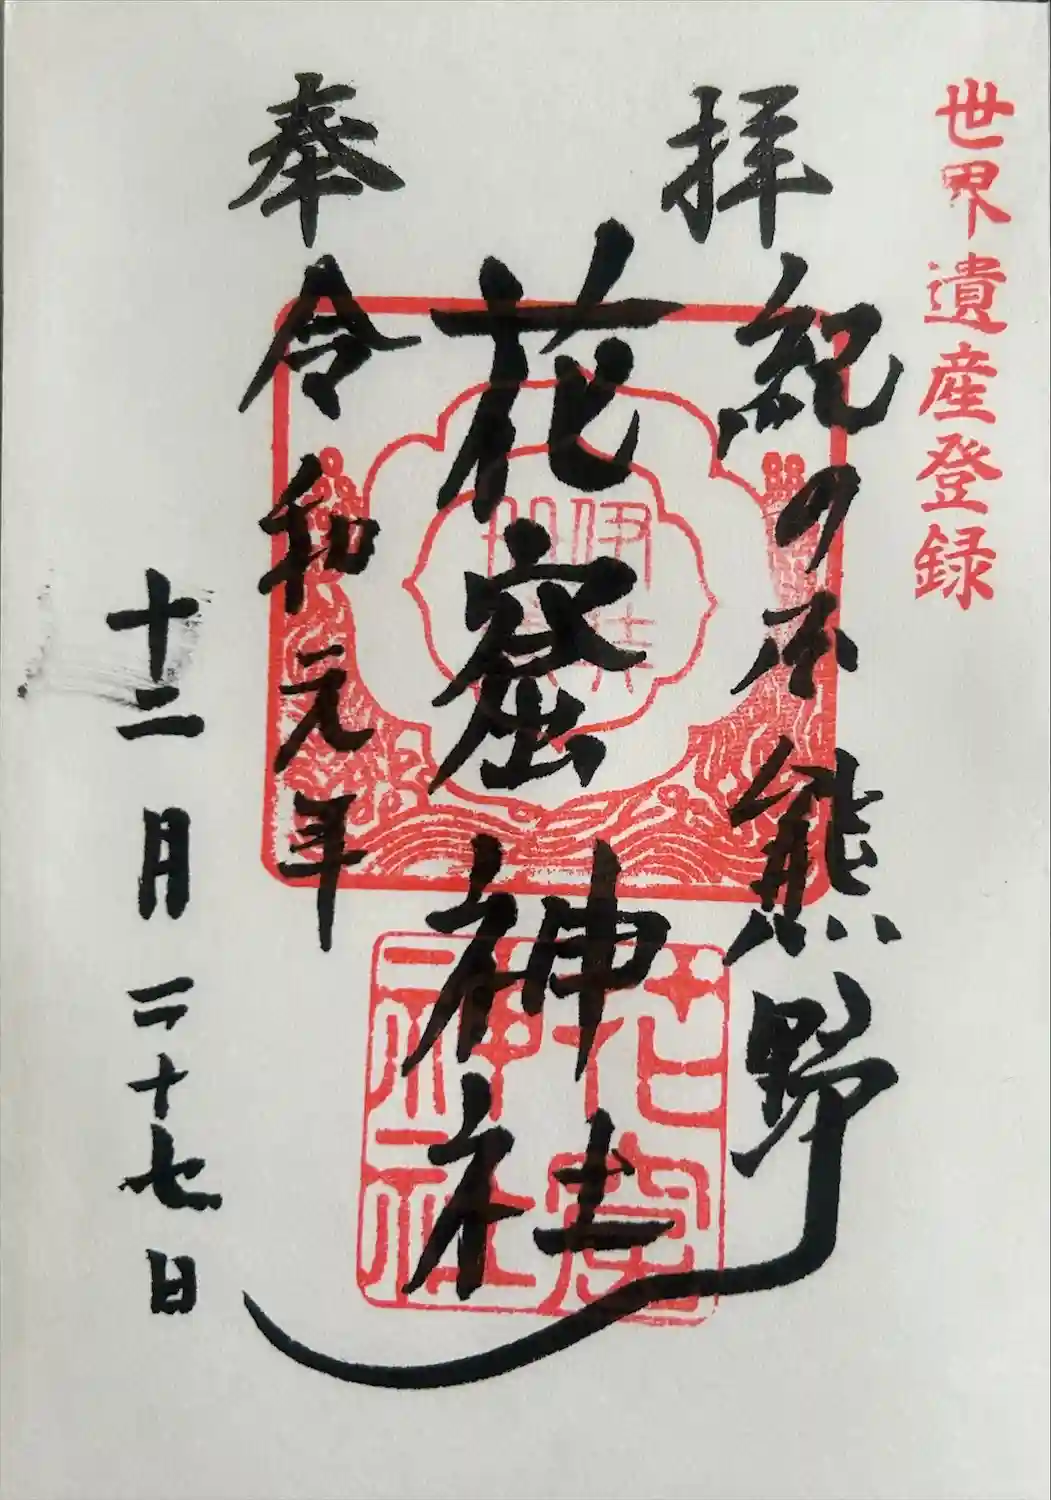 世界遺産登録
奉拝
紀の本熊野
花窟神社
令和元年
十二月二十七日
花窟神社